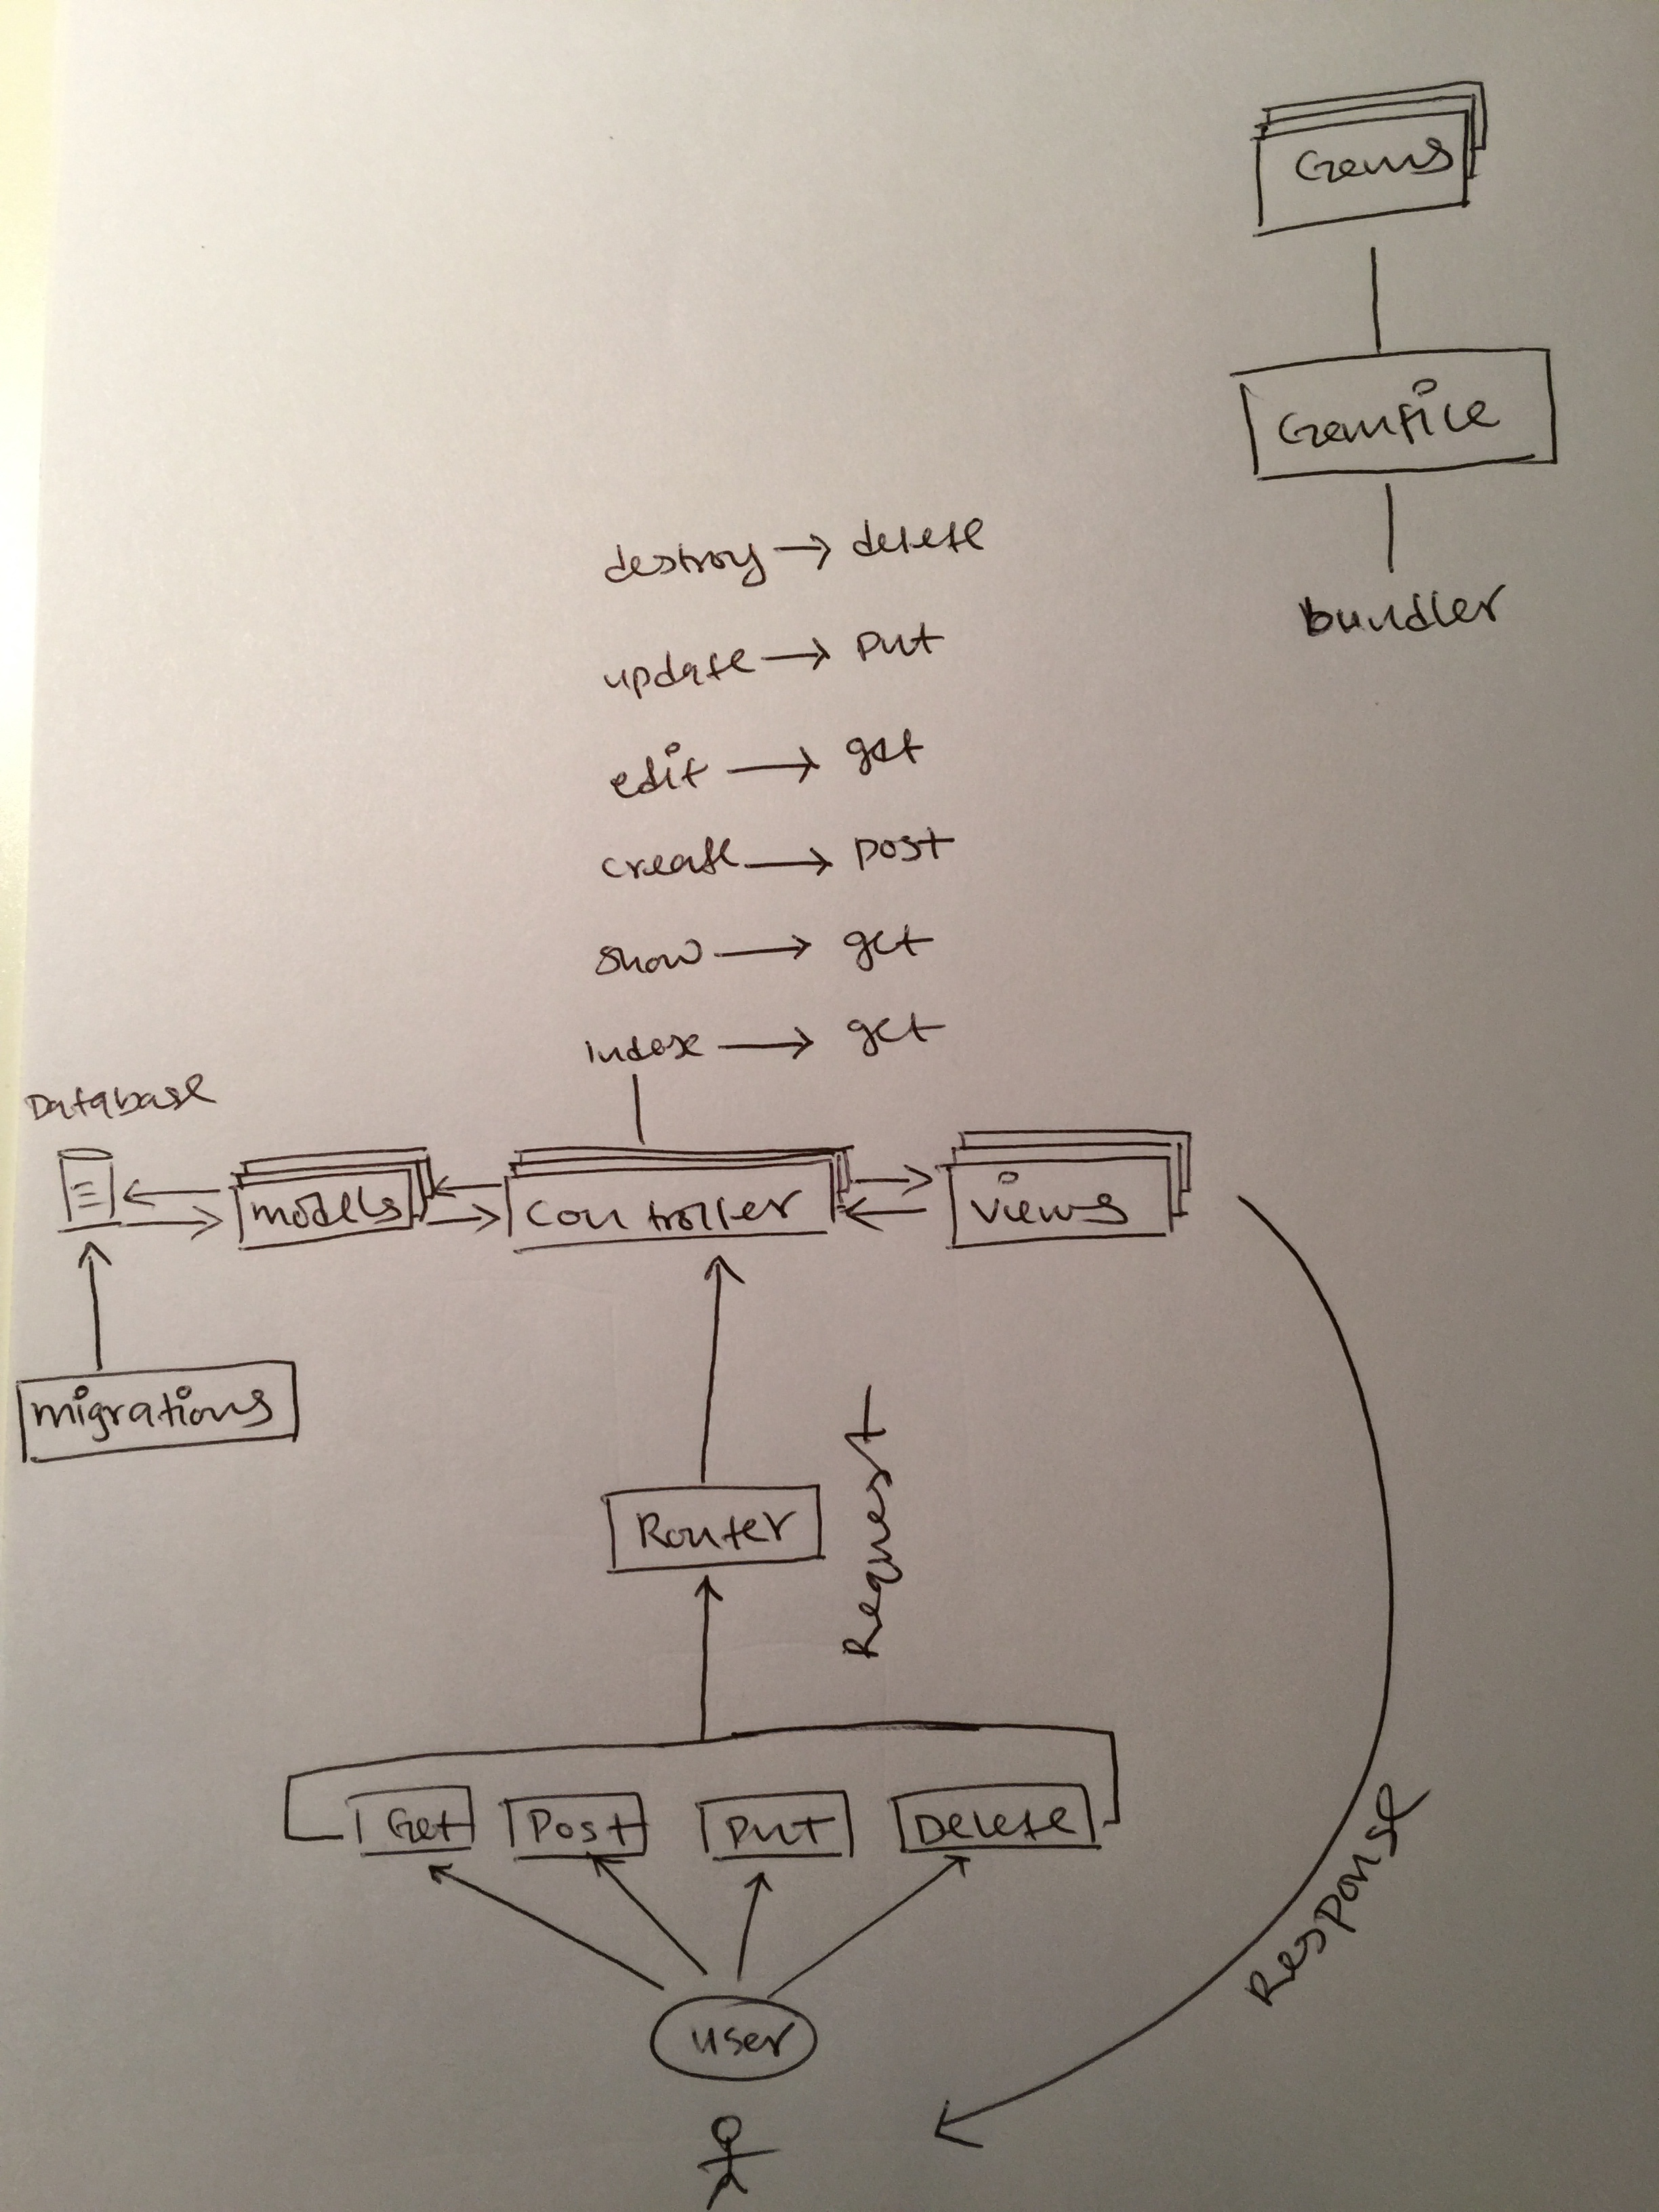 Gems
Gemfile
bundler
destroy → delete
update → put
edit → get
create → post
show → get
index → get
Database
models
controller
views
migrations
Router
Request
Get
Post
Put
Delete
Response
user